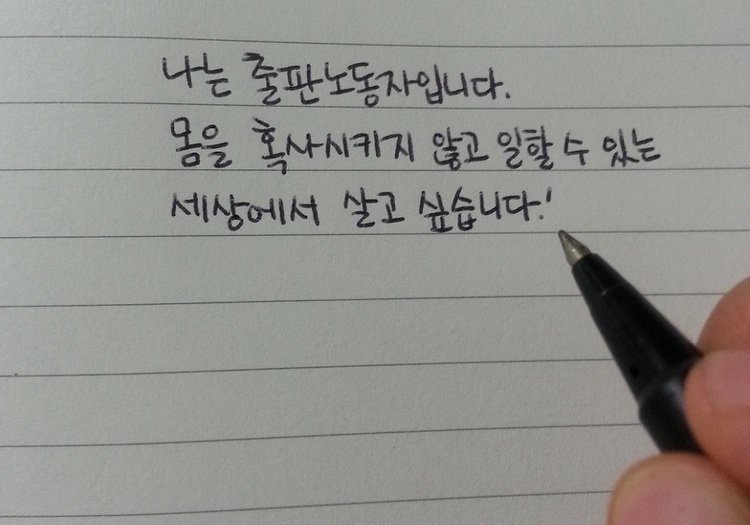 나는 출판노동자입니다.
몸을 혹사시키지 않고 일할 수 있는
세상에서 살고 싶습니다!